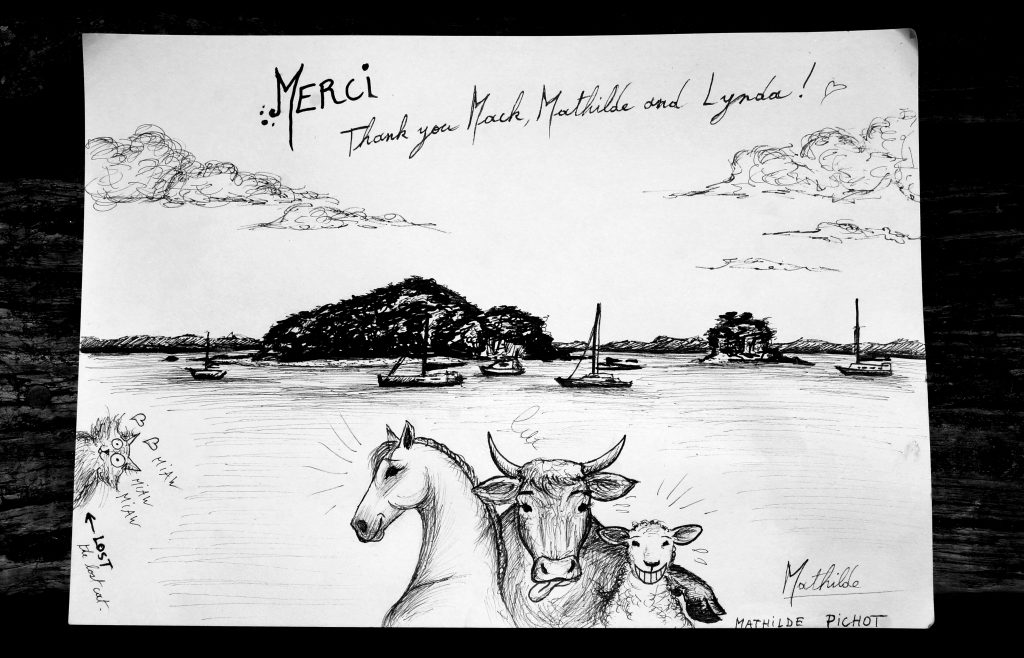 MERCI
Thank you Mack, Mathilde and Lynda!
MIAW
MIAW
MIAW
LOST
the lost cat.
Mathilde
MATHILDE PICHOT